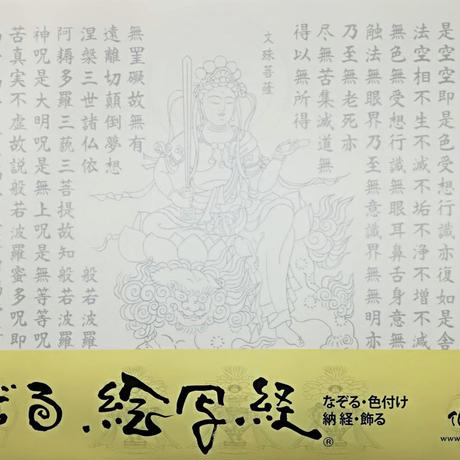 是空空即是色受想行識亦復如是舍
法空相不生不滅不垢不浄不増不減
無色無受想行識無眼耳鼻舌身意無
触法無眼界乃至無意識界無無明亦
乃至無老死亦
尽無苦集滅道無
得以無所得
文殊菩薩
無罣礙故無有
遠離切顛倒夢想
涅槃三世諸仏依 般若波羅
阿耨多羅三藐三菩提故知般若波羅
神呪是大明呪是無上呪是無等等呪
苦真実不虚故説般若波羅蜜多呪即
ぞる 絵写経®
なぞる・色付け
納経・飾る
www.